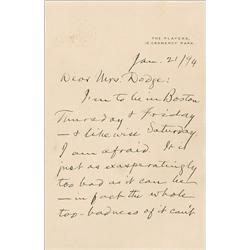 THE PLAYERS,
16 GRAMERCY PARK.
Jan. 21/94
Dear Mrs. Dodge:
I'm to be in Boston
Thursday & Friday
— & likewise Saturday
I am afraid. It is
just as exasperatingly
too bad as it can be
— in fact the whole
too-badness of it can't